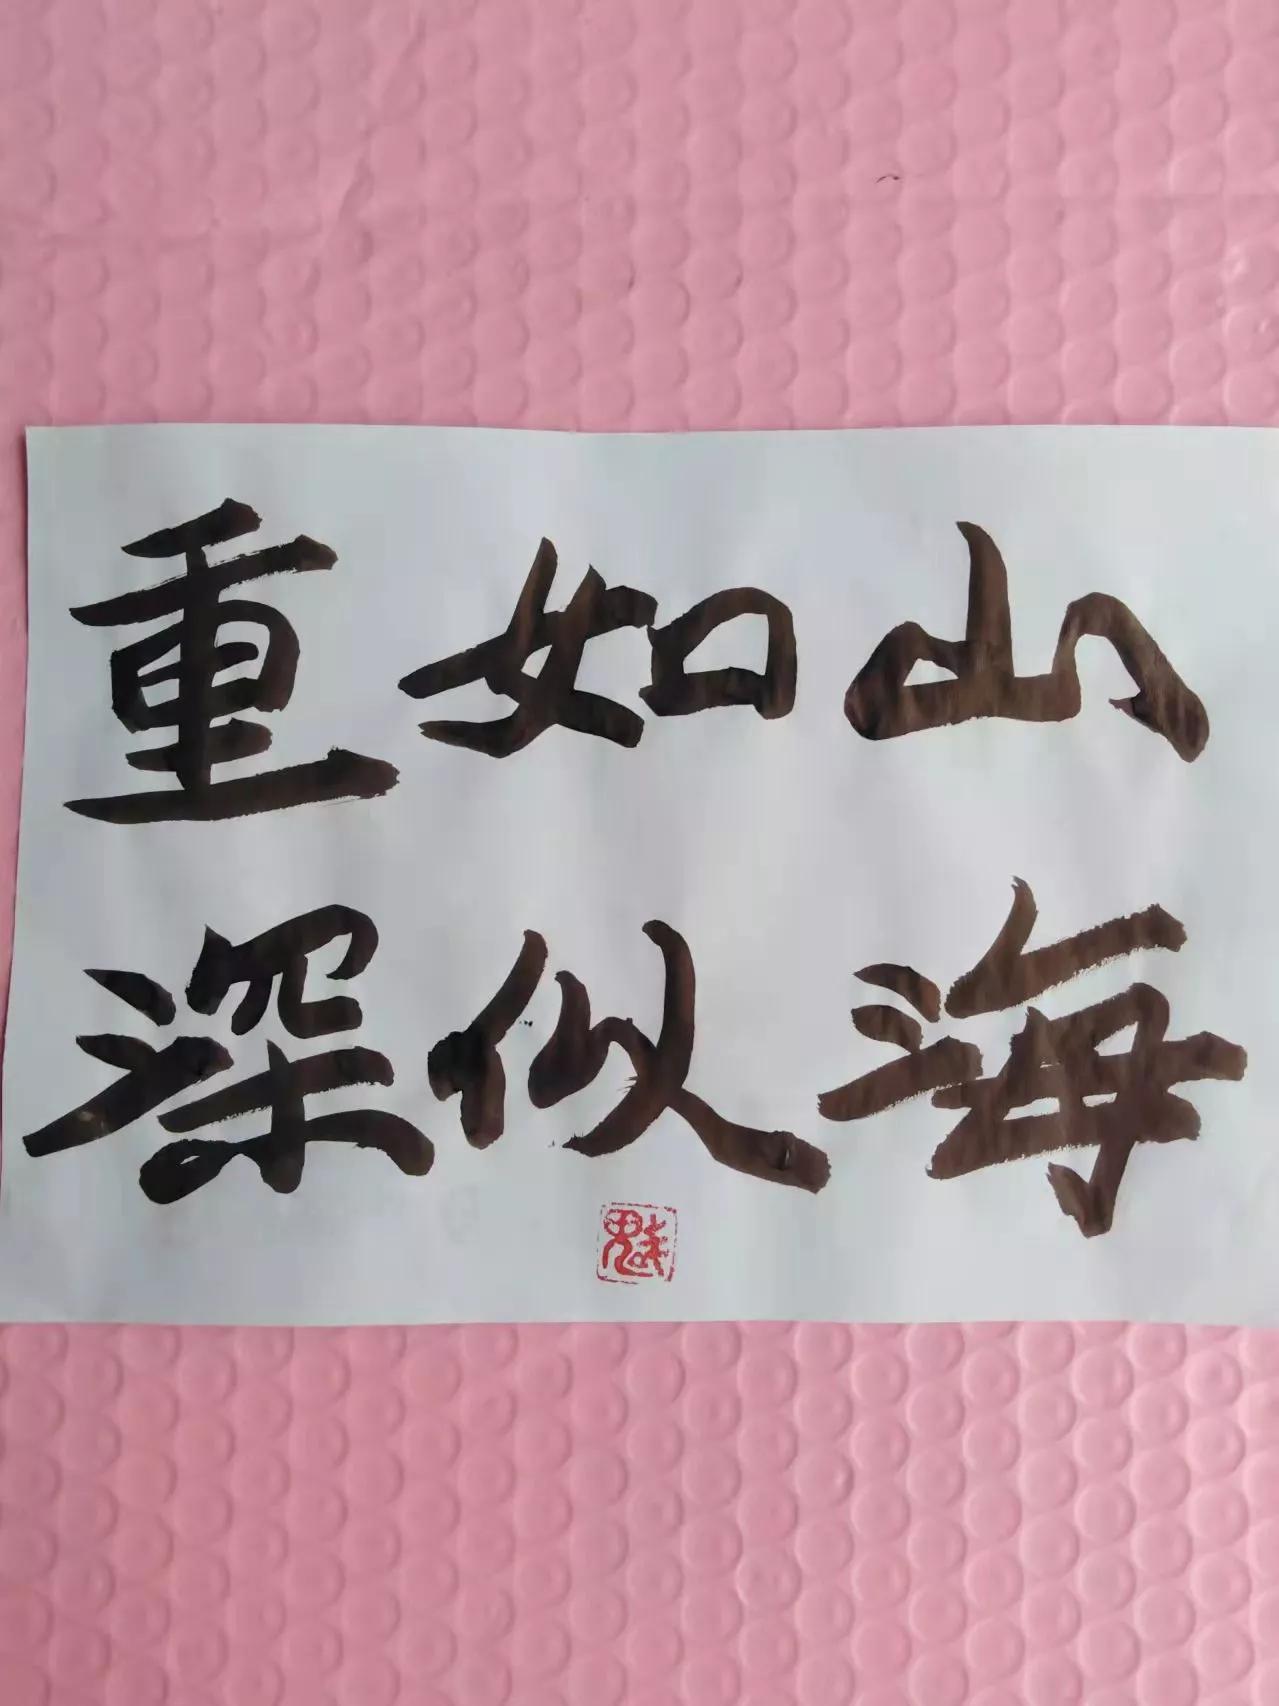 重如山
深似海
魁